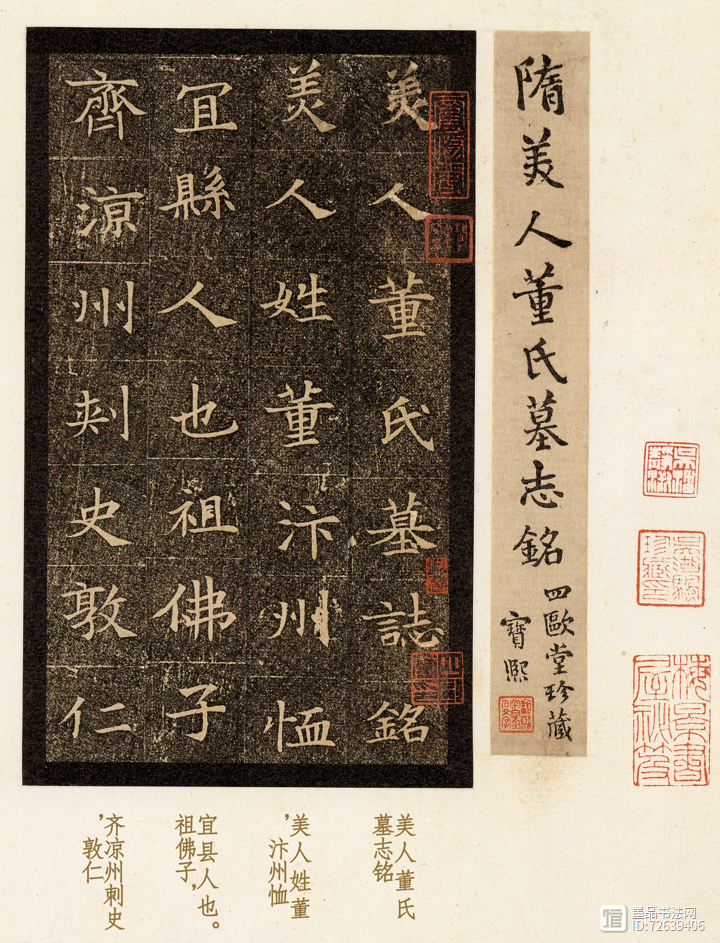 隋美人董氏墓志銘
四歐堂珍藏
寶熙
美人董氏墓誌銘
美人姓董汴州恤
冝縣人也祖佛子
齊涼州刺史敦仁
美人董氏
墓志铭
美人姓董
，汴州恤
宜县人也。
祖佛子，
齐凉州刺史
，敦仁
墨品书法网
ID:72639406